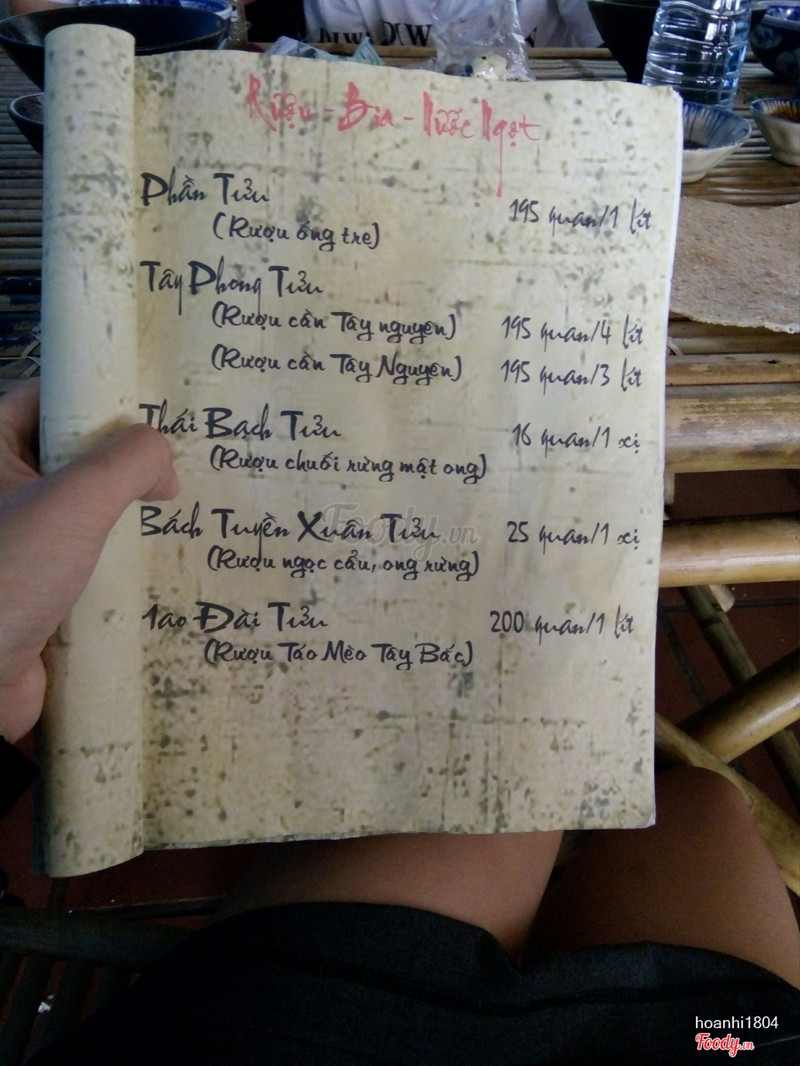 Rượu - Bia - Nước Ngọt
Phần Tửu
(Rượu ống tre)
195 quan/1 lít
Tây Phong Tửu
(Rượu cần Tây nguyên) 195 quan/4 lít
(Rượu cần Tây Nguyên) 195 quan/3 lít
Thái Bạch Tửu 16 quan/1 xị
(Rượu chuối rừng mật ong)
Bách Tuyền Xuân Tửu 25 quan/1 xị
(Rượu ngọc cẩu, ong rừng)
1ao Đài Tửu 200 quan/1 lít
(Rượu Táo Mèo Tây Bắc)
Foody.vn
hoanhi1804
Foody.vn